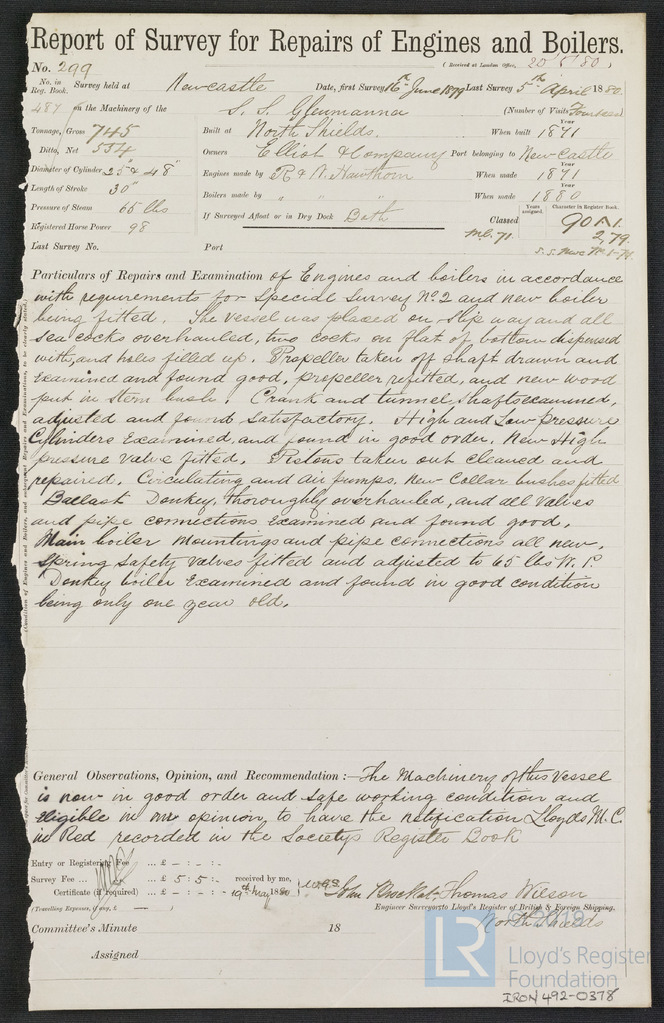 Report of Survey for Repairs of Engines and Boilers.
No. 299 (Received at London Office, 20/5/80)
No. in Reg. Book. Survey held at Newcastle Date, first Survey 16th June 1879 Last Survey 5th April 1880.
487 on the Machinery of the S. S. Glenmanna (Number of Visits Fourteen)
Tonnage, Gross 745 Built at North Shields. When built Year 1871
Ditto, Net 554 Owners Elliot & Company Port belonging to Newcastle
Diameter of Cylinder 25 & 48" Engines made by R & W. Hawthorn When made Year 1871
Length of Stroke 30" Boilers made by " " " When made Year 1880
Pressure of Steam 65 lbs If Surveyed Afloat or in Dry Dock Both Classed Years assigned. Character in Register Book. 90 A 1.
Registered Horse Power 98 M.C. 71. 2,79.
Last Survey No. Port S.S. Nwc No 1-74
Particulars of Repairs and Examination of Engines and boilers in accordance
with requirements for Special Survey No. 2 and new boiler
being fitted. The vessel was placed on slip way and all
sea cocks overhauled, two cocks on flat of bottom dispensed
with, and holes filled up. Propeller taken off shaft drawn and
examined and found good, propeller refitted, and new wood
put in stern bush. Crank and tunnel shafts examined,
adjusted and found satisfactory. High and Low pressure
Cylinders examined, and found in good order. New High
pressure valve fitted. Pistons taken out cleaned and
repaired. Circulating and air pumps, new Collar bushes fitted
Ballast Donkey, thoroughly overhauled, and all valves
and pipe connections examined and found good.
Main boiler mountings and pipe connections all new.
Spring Safety valves fitted and adjusted to 65 lbs W. P.
Donkey boiler examined and found in good condition
being only one year old.
General Observations, Opinion, and Recommendation:—The Machinery of this Vessel
is now in good order and safe working condition and
eligible in our opinion, to have the notification Lloyds M. C.
in Red recorded in the Society's Register Book
Entry or Registering Fee ... £ - : - : -
Survey Fee ... £ 5 : 5 : - received by me,
Certificate (if required) ... £ - : - : - 19th May 1880 Thomas Wilson
(Travelling Expenses, if any, £ — ) Engineer Surveyors to Lloyd's Register of British & Foreign Shipping.
North Shields
Committee's Minute 18
Assigned
© 2019
LR Lloyd's Register
Foundation
IRON 492-0378